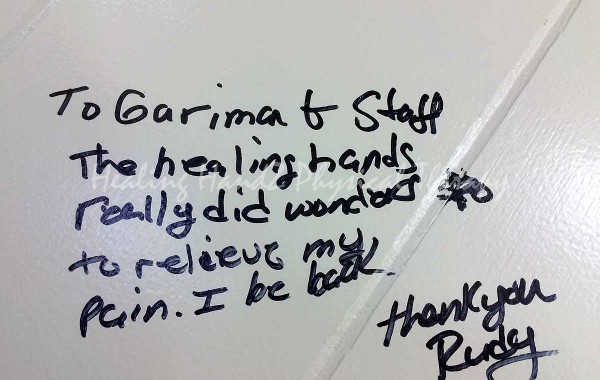 To Garima & Staff
The healing hands
really did wonders
to relieve my
pain. I be back.
thank you
Rudy
Healing Hands Physical Therapy